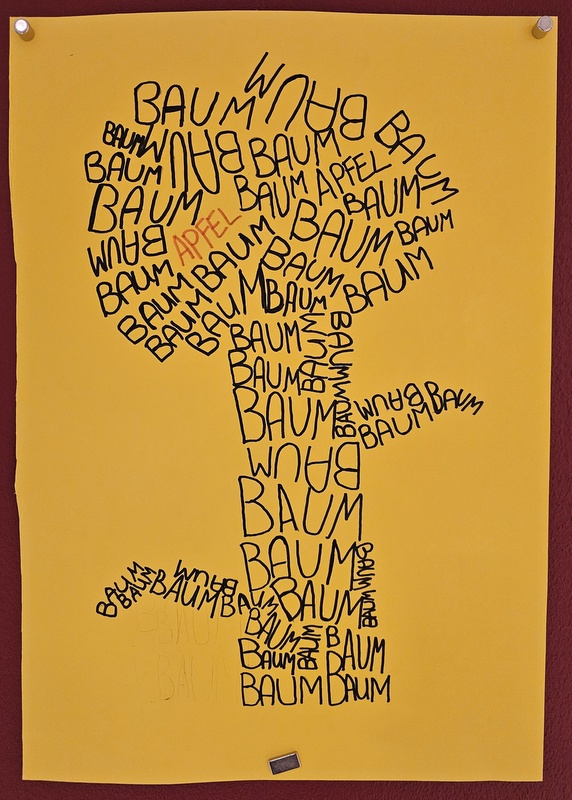 BAUM BAUM
BAUM BAUM BAUM BAUM
BAUM BAUM APFEL BAUM
BAUM APFEL BAUM BAUM
BAUM BAUM BAUM BAUM
BAUM BAUM BAUM
BAUM BAUM BAUM
BAUM BAUM BAUM
BAUM BAUM BAUM BAUM BAUM
BAUM BAUM
BAUM
BAUM
BAUM BAUM
BAUM BAUM BAUM BAUM BAUM BAUM BAUM
BAUM BAUM BAUM
BAUM BAUM
BAUM BAUM
BAUM
BAUM